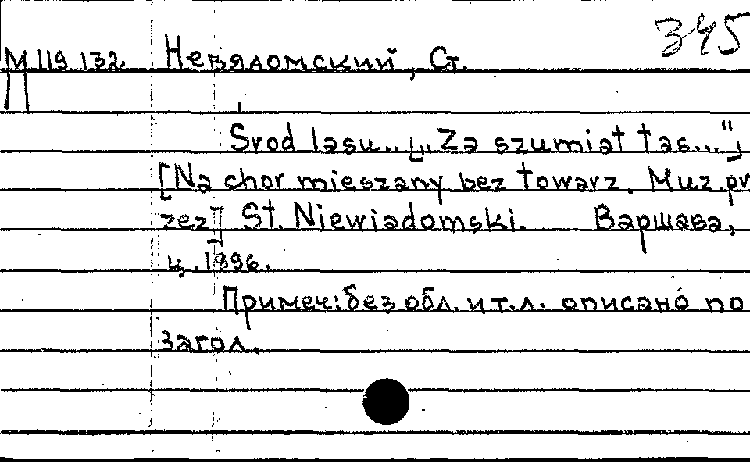 345
М 119 132 Невядомский, Ст.
Srod lasu... „Za szumiat tas..."
[Na chor mieszany bez towarz. Muz. pr
zez] St. Niewiadomski. Варшава,
ц. 1896.
Примеч: без обл. и т.л. описано по
загол.